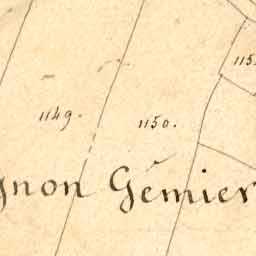 115
1149. 1150.
gnon Gémier